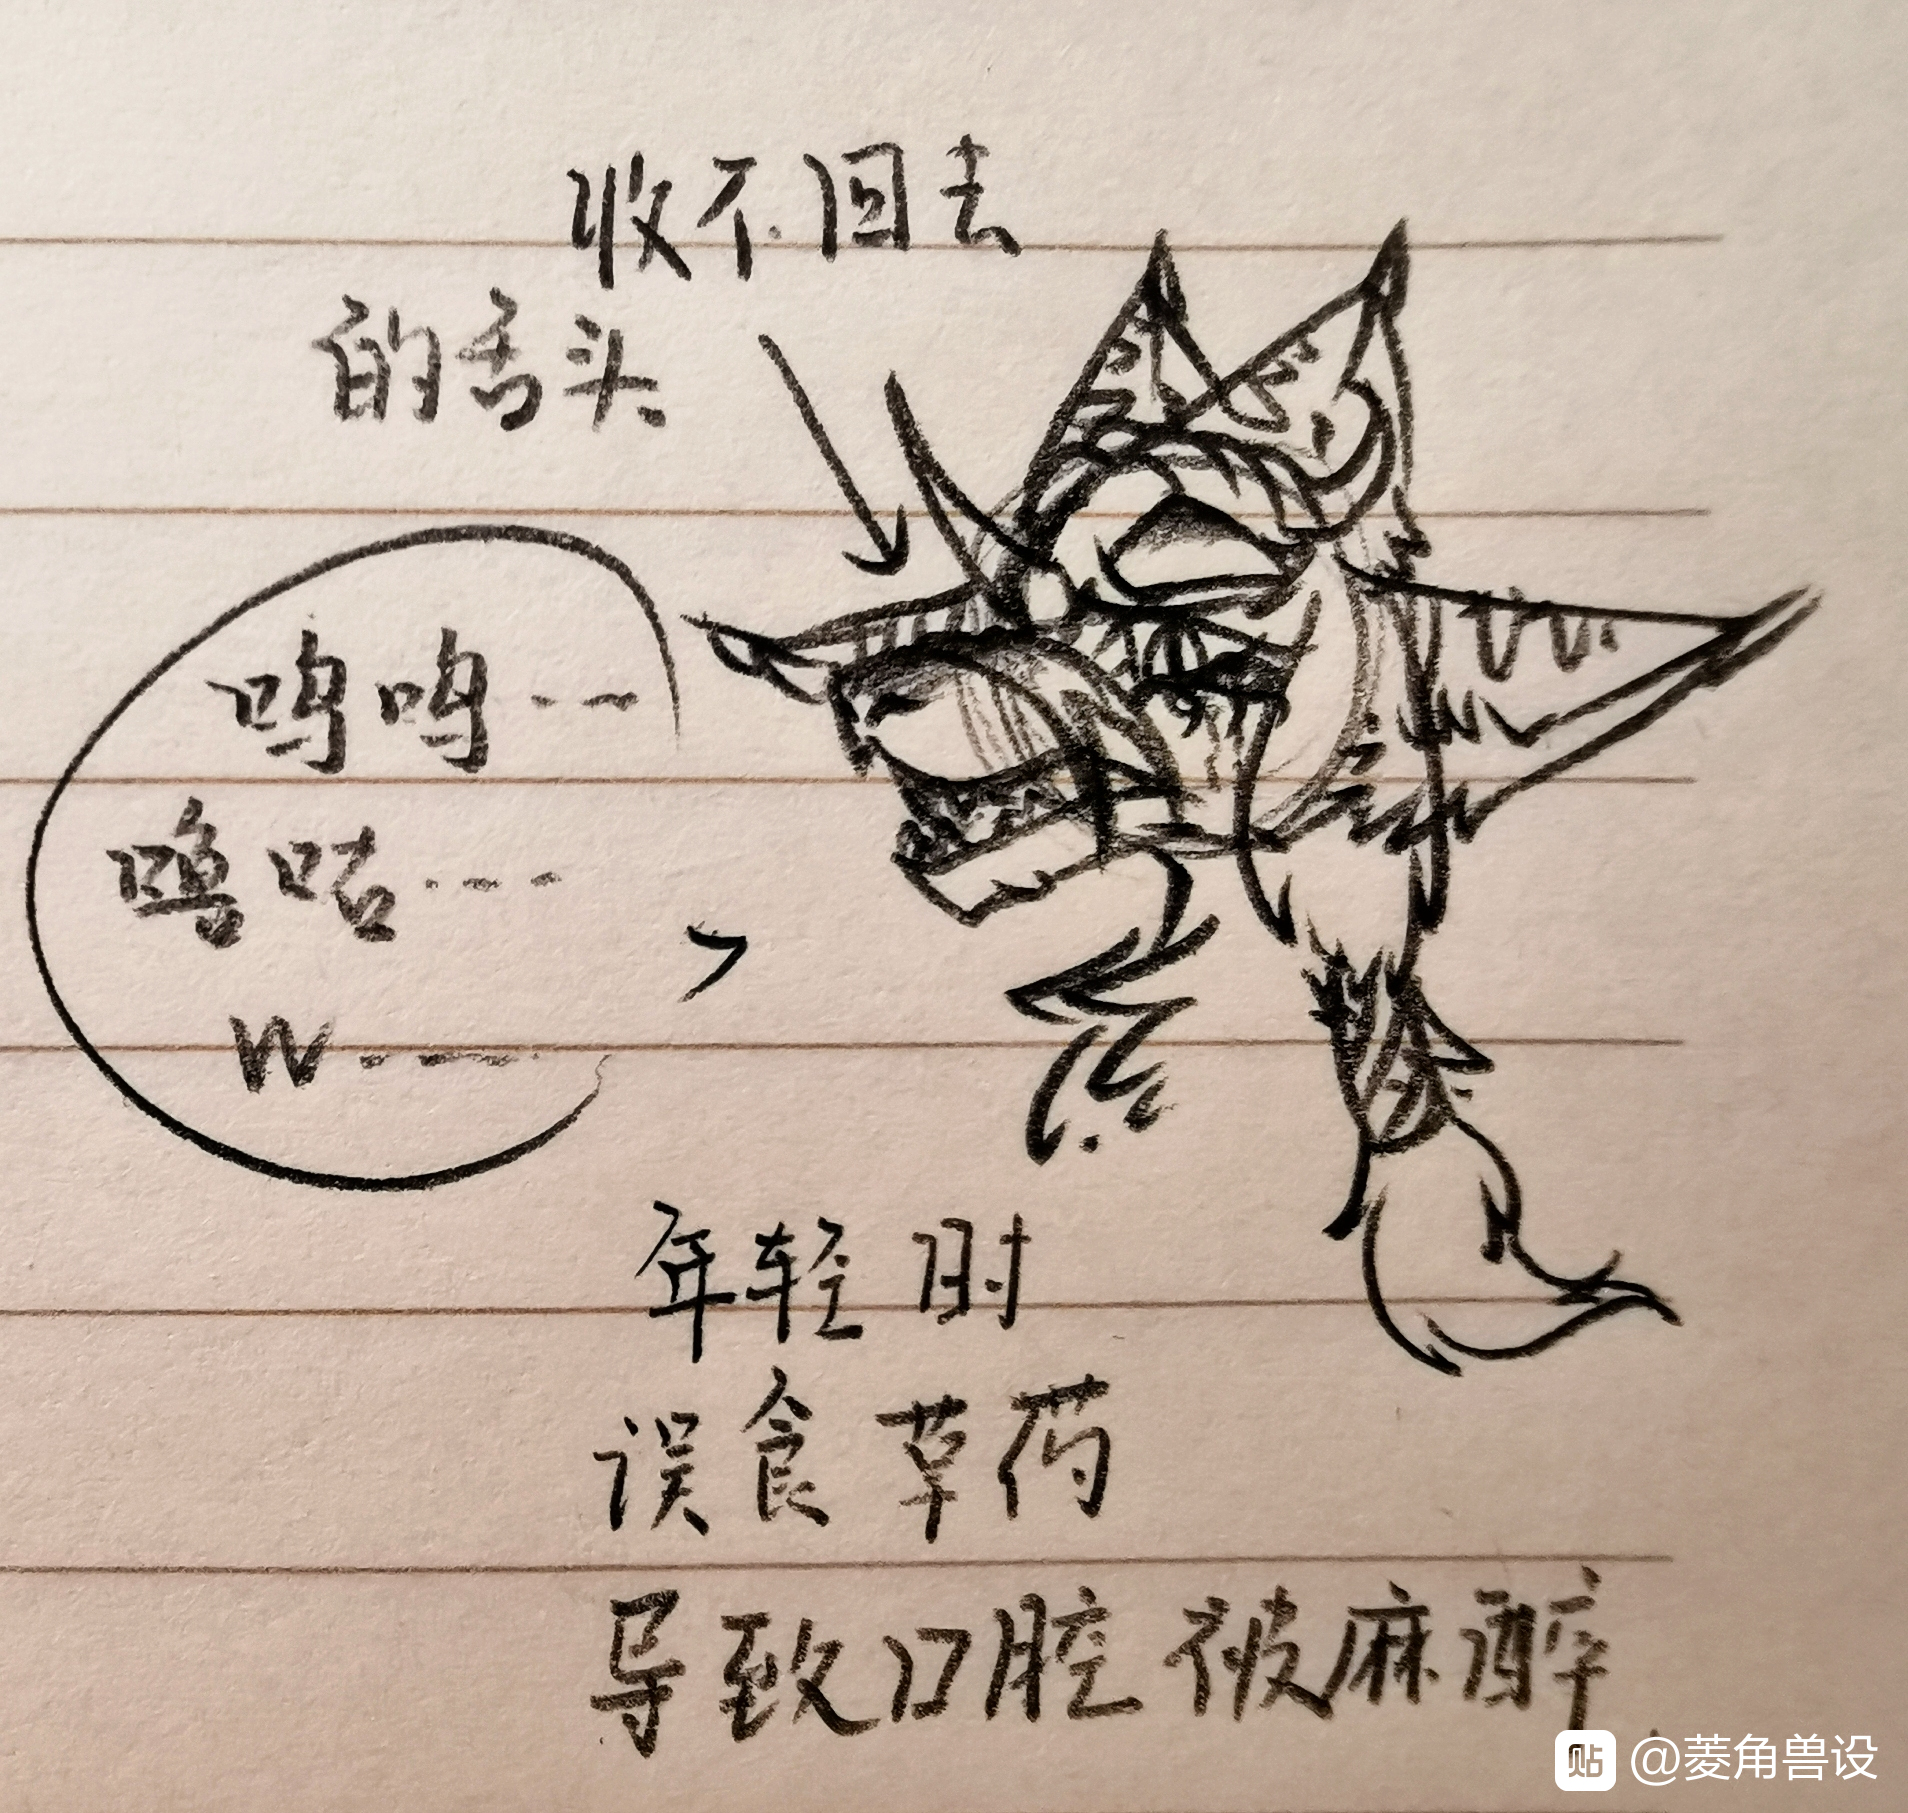 收不回去
的舌头
呜呜……
噜咕……
W……
年轻时
误食草药
导致口腔被麻醉
贴 @菱角兽设